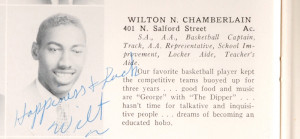 WILTON N. CHAMBERLAIN
401 N. Salford Street Ac.
S.A., A.A., Basketball Captain,
Track, A.A. Representative, School Im-
provement, Locker Aide, Teacher's
Aide.
Our favorite basketball player kept
the competitive teams buoyed up for
three years . . . good food and music
are "George" with "The Dipper" . . .
hasn't time for talkative and inquisi-
tive people . . . dreams of becoming an
educated hobo.
Happiness & Luck
Wilt